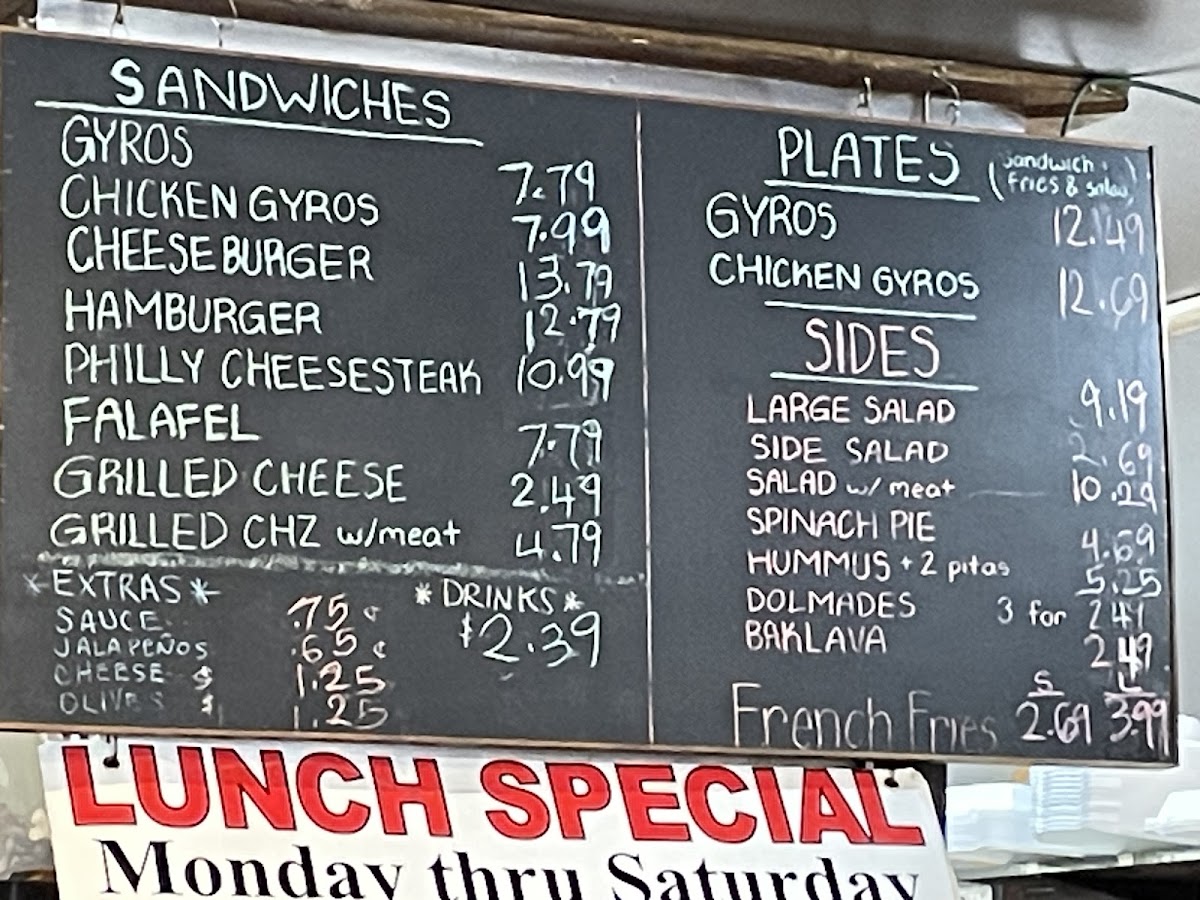 SANDWICHES
GYROS 7.79
CHICKEN GYROS 7.99
CHEESEBURGER 13.79
HAMBURGER 12.79
PHILLY CHEESESTEAK 10.99
FALAFEL 7.79
GRILLED CHEESE 2.49
GRILLED CHZ w/meat 4.79
*EXTRAS*
SAUCE .75 ¢
JALAPEÑOS .65 ¢
CHEESE $ 1.25
OLIVES $ 1.25
*DRINKS*
$2.39
PLATES (Sandwich + Fries & salad)
GYROS 12.49
CHICKEN GYROS 12.69
SIDES
LARGE SALAD 9.19
SIDE SALAD 2.69
SALAD w/ meat 10.29
SPINACH PIE 4.69
HUMMUS + 2 pitas 5.25
DOLMADES 3 for 2.49
BAKLAVA 2.49
S L
French Fries 2.69 3.99
LUNCH SPECIAL
Monday thru Saturday